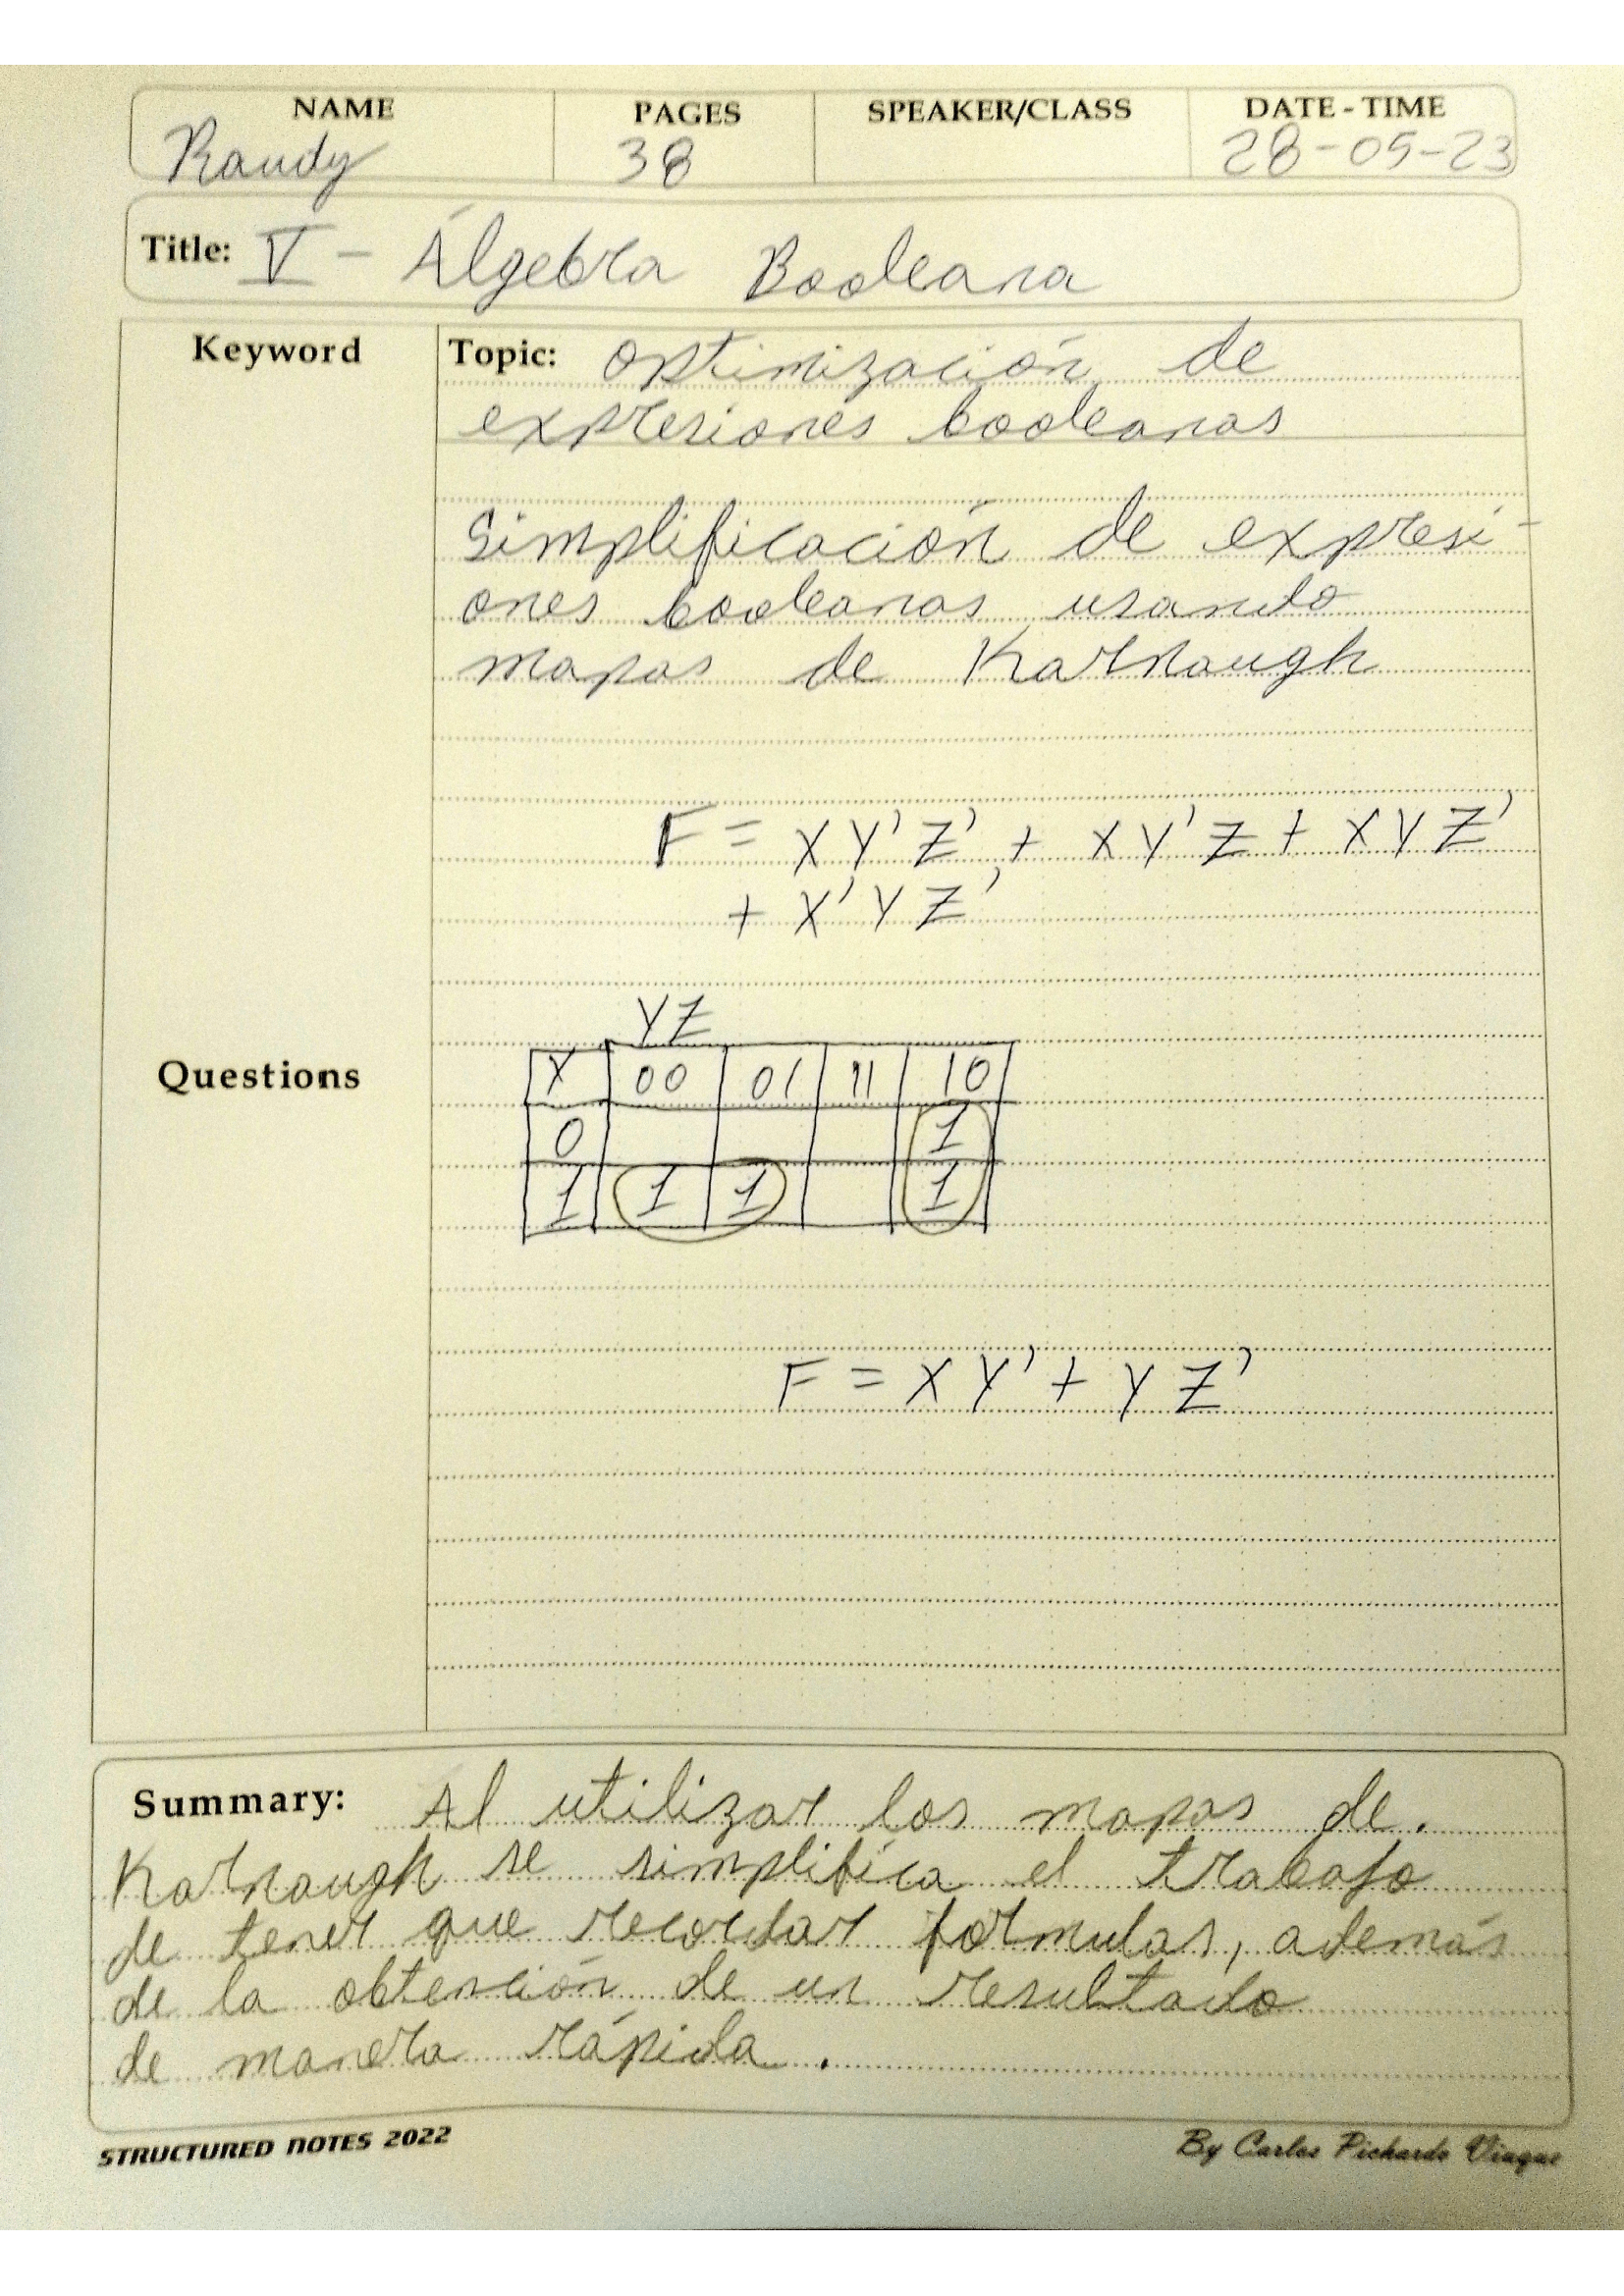 NAME PAGES SPEAKER/CLASS DATE-TIME
Randy 38 28-05-23
Title: V - Álgebra Booleana
Keyword
Topic: Optimización de
expresiones booleanas
Simplificación de expresi-
ones booleanas usando
mapas de Karnaugh
F = XY'Z' + XY'Z + XYZ'
+ X'YZ'
YZ
Questions
X 00 01 11 10
0 1
1 1 1 1
F = XY' + YZ'
Summary: Al utilizar los mapas de.
Karnaugh se simplifica el trabajo
de tener que recordar formulas, además
de la obtención de un resultado
de manera rápida.
STRUCTURED NOTES 2022
By Carlos Pichardo Viuque